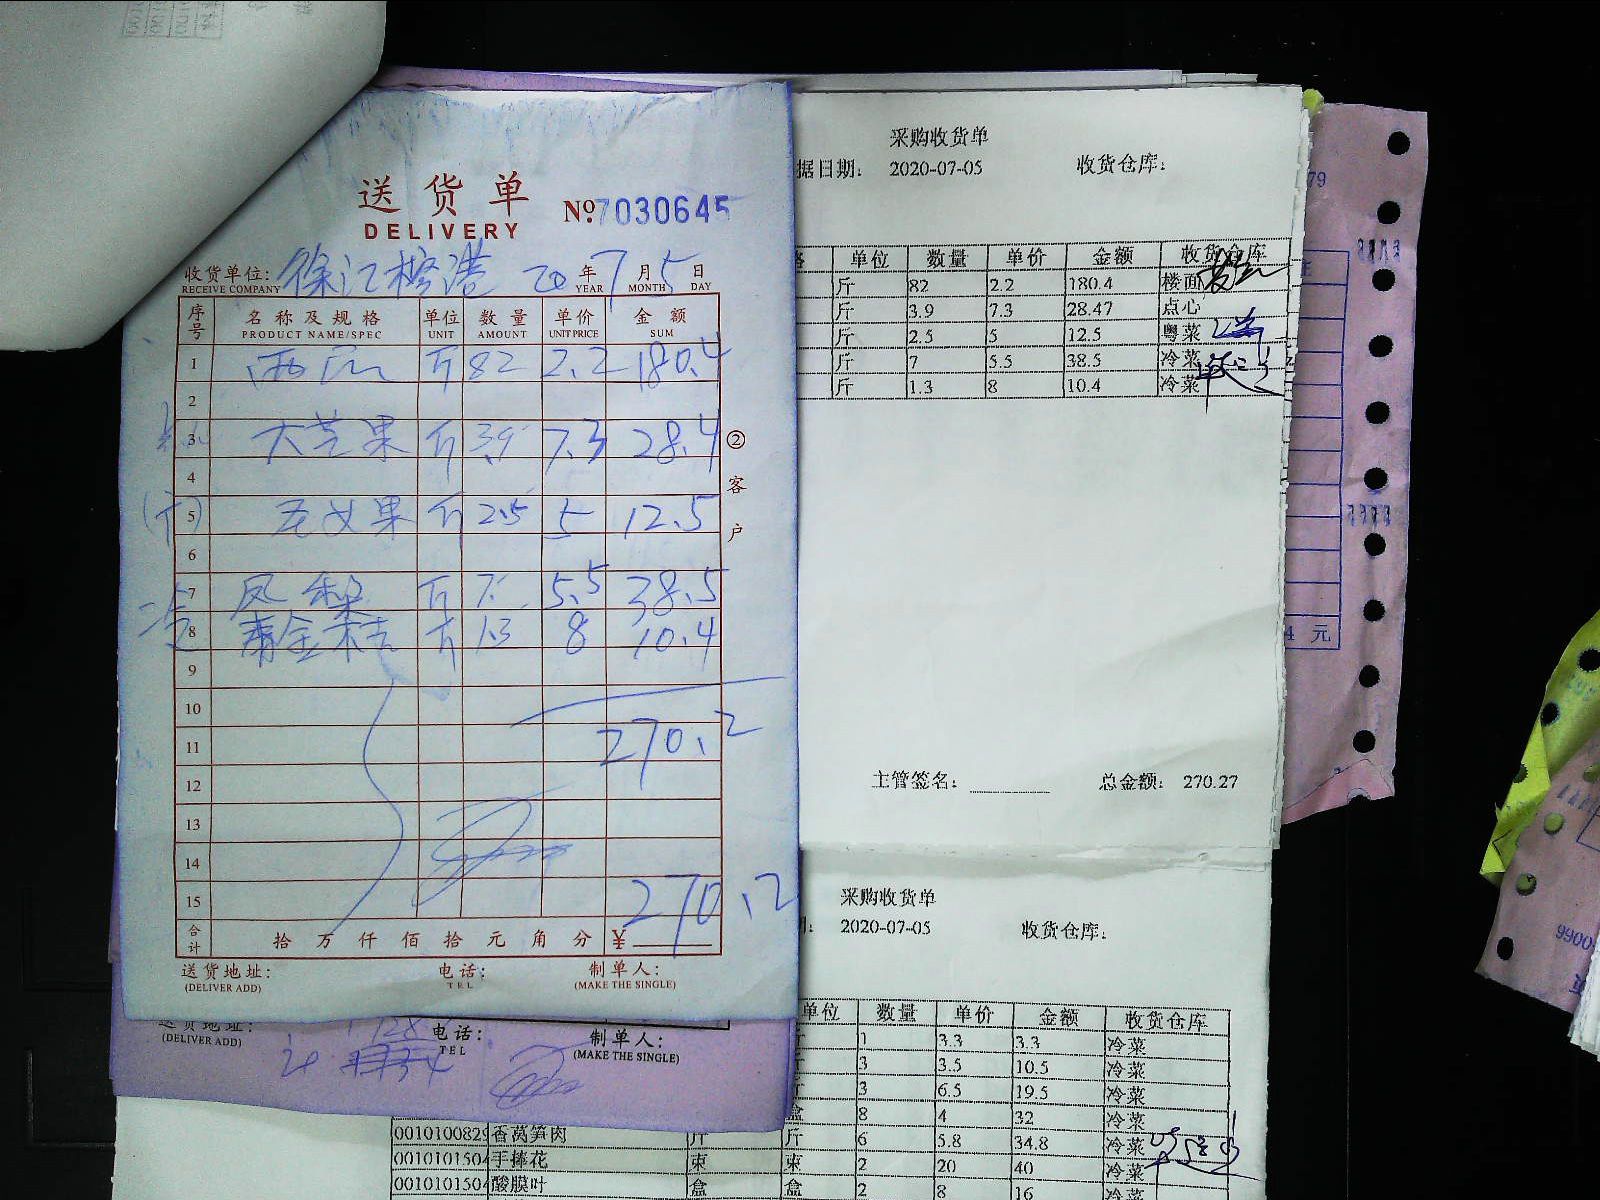 送货单
DELIVERY
No. 7030645
收货单位: 徐汇 港 20年7月5日
RECEIVE COMPANY YEAR MONTH DAY
序号 名称及规格 单位 数量 单价 金额
PRODUCT NAME/SPEC UNIT AMOUNT UNIT PRICE SUM
1 西瓜 斤 82 2.2 180.4
2
3 大芒果 斤 3.9 7.3 28.4
4
5 火果 斤 2.5 5 12.5
6
7 凤梨 斤 7 5.5 38.5
8 青金桔 斤 1.3 8 10.4
9
10
11 270.2
12
13
14
15 270.2
合计 拾万仟佰拾元角分 ¥
②客户
送货地址: 电话: 制单人:
(DELIVER ADD) TEL (MAKE THE SINGLE)
送货地址: 电话: 制单人:
(DELIVER ADD) TEL (MAKE THE SINGLE)
采购收货单
据日期: 2020-07-05 收货仓库:
单位 数量 单价 金额 收货仓库
斤 82 2.2 180.4 楼面
斤 3.9 7.3 28.47 点心
斤 2.5 5 12.5 粤菜
斤 7 5.5 38.5 冷菜
斤 1.3 8 10.4 冷菜
主管签名: 总金额: 270.27
采购收货单
期: 2020-07-05 收货仓库:
单位 数量 单价 金额 收货仓库
1 3.3 3.3 冷菜
3 3.5 10.5 冷菜
3 6.5 19.5 冷菜
盒 8 4 32 冷菜
0010100829 香莴笋肉 斤 斤 6 5.8 34.8 冷菜
0010101504 手捧花 束 束 2 20 40 冷菜
0010101504 酸膜叶 盒 盒 2 8 16 冷菜
79
4 元
9900